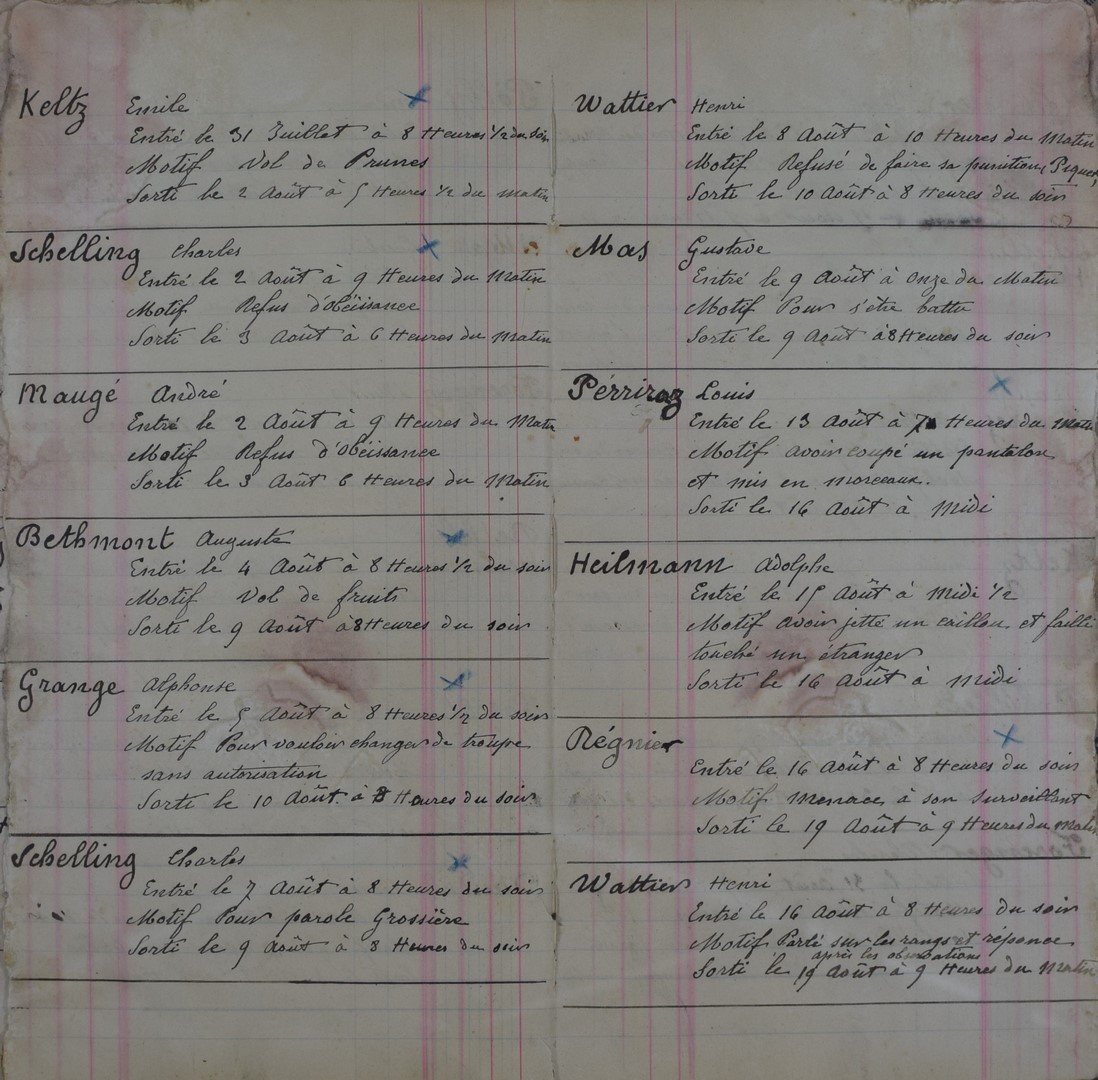 Keltz Emile
Entré le 31 Juillet à 8 Heures 1/2 du soir
Motif Vol de Prunes
Sorti le 2 Août à 5 Heures 1/2 du matin
Schelling Charles
Entré le 2 Août à 9 Heures du Matin
Motif Refus d'obéissance
Sorti le 3 Août à 6 Heures du Matin
Maugé André
Entré le 2 Août à 9 Heures du Matin
Motif Refus d'obéissance
Sorti le 3 Août 6 Heures du Matin
Bethmont Auguste
Entré le 4 Août à 8 Heures 1/2 du soir
Motif Vol de fruits
Sorti le 9 Août à 8 Heures du soir
Grange Alphonse
Entré le 5 Août à 8 Heures 1/2 du soir
Motif Pour vouloir changer de troupe
sans autorisation
Sorti le 10 Août à 8 Heures du soir
Schelling Charles
Entré le 7 Août à 8 Heures du soir
Motif Pour parole Grossière
Sorti le 9 Août à 8 Heures du soir
Wattier Henri
Entré le 8 Août à 10 Heures du Matin
Motif Refusé de faire sa punition (Piquet)
Sorti le 10 Août à 8 Heures du soir
Mas Gustave
Entré le 9 Août à Onze du Matin
Motif Pour s'être battu
Sorti le 9 Août à 8 Heures du soir
Perriraz Louis
Entré le 13 Août à 7 Heures du Matin
Motif avoir coupé un pantalon
et mis en morceaux.
Sorti le 16 Août à Midi
Heilmann Adolphe
Entré le 15 Août à Midi 1/2
Motif avoir jetté un caillou et failli
touché un étranger
Sorti le 16 Août à Midi
Régnier
Entré le 16 Août à 8 Heures du soir
Motif Menace à son Surveillant
Sorti le 19 Août à 9 Heures du Matin
Wattier Henri
Entré le 16 Août à 8 Heures du soir
Motif Parlé sur les rangs et réponce
après les observations
Sorti le 19 Août à 9 Heures du Matin